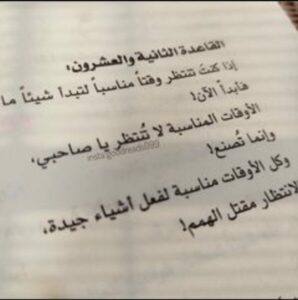 القاعدة الثانية والعشرون:
إذا كنتَ تنتظر وقتاً مناسباً لتبدأ شيئاً ما
فابدأ الآن!
الأوقات المناسبة لا تُنتظر يا صاحبي،
insta:goodreads099
وإنما تُصنع!
وكل الأوقات مناسبة لفعل أشياء جيدة،
الانتظار مقتل الهمم!